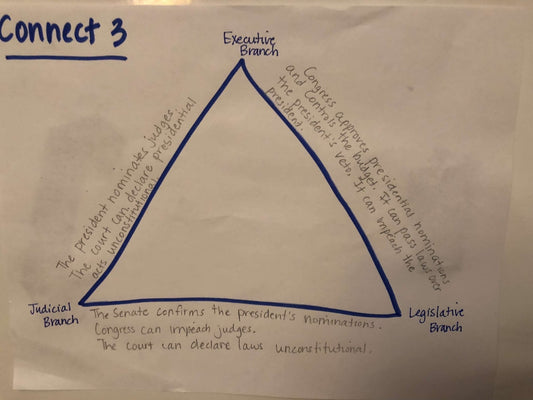 Connect 3
Executive
Branch
The president nominates judges
The court can declare presidential
acts unconstitutional.
Congress approves presidential nominations
and controls the budget. It can pass laws over
the president's veto. It can impeach the
president.
Judicial
Branch
The Senate confirms the president's nominations.
Congress can impeach judges.
The court can declare laws unconstitutional.
Legislative
Branch